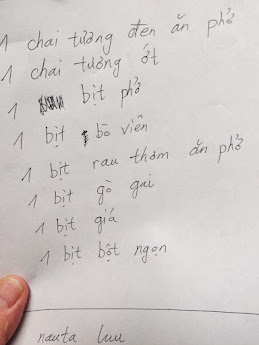 1 chai tương đen ăn phở
1 chai tương ớt
1 bịt phở
1 bịt bò viên
1 bịt rau thơm ăn phở
1 bịt gò gai
1 bịt giá
1 bịt bột ngọn
nauta luu